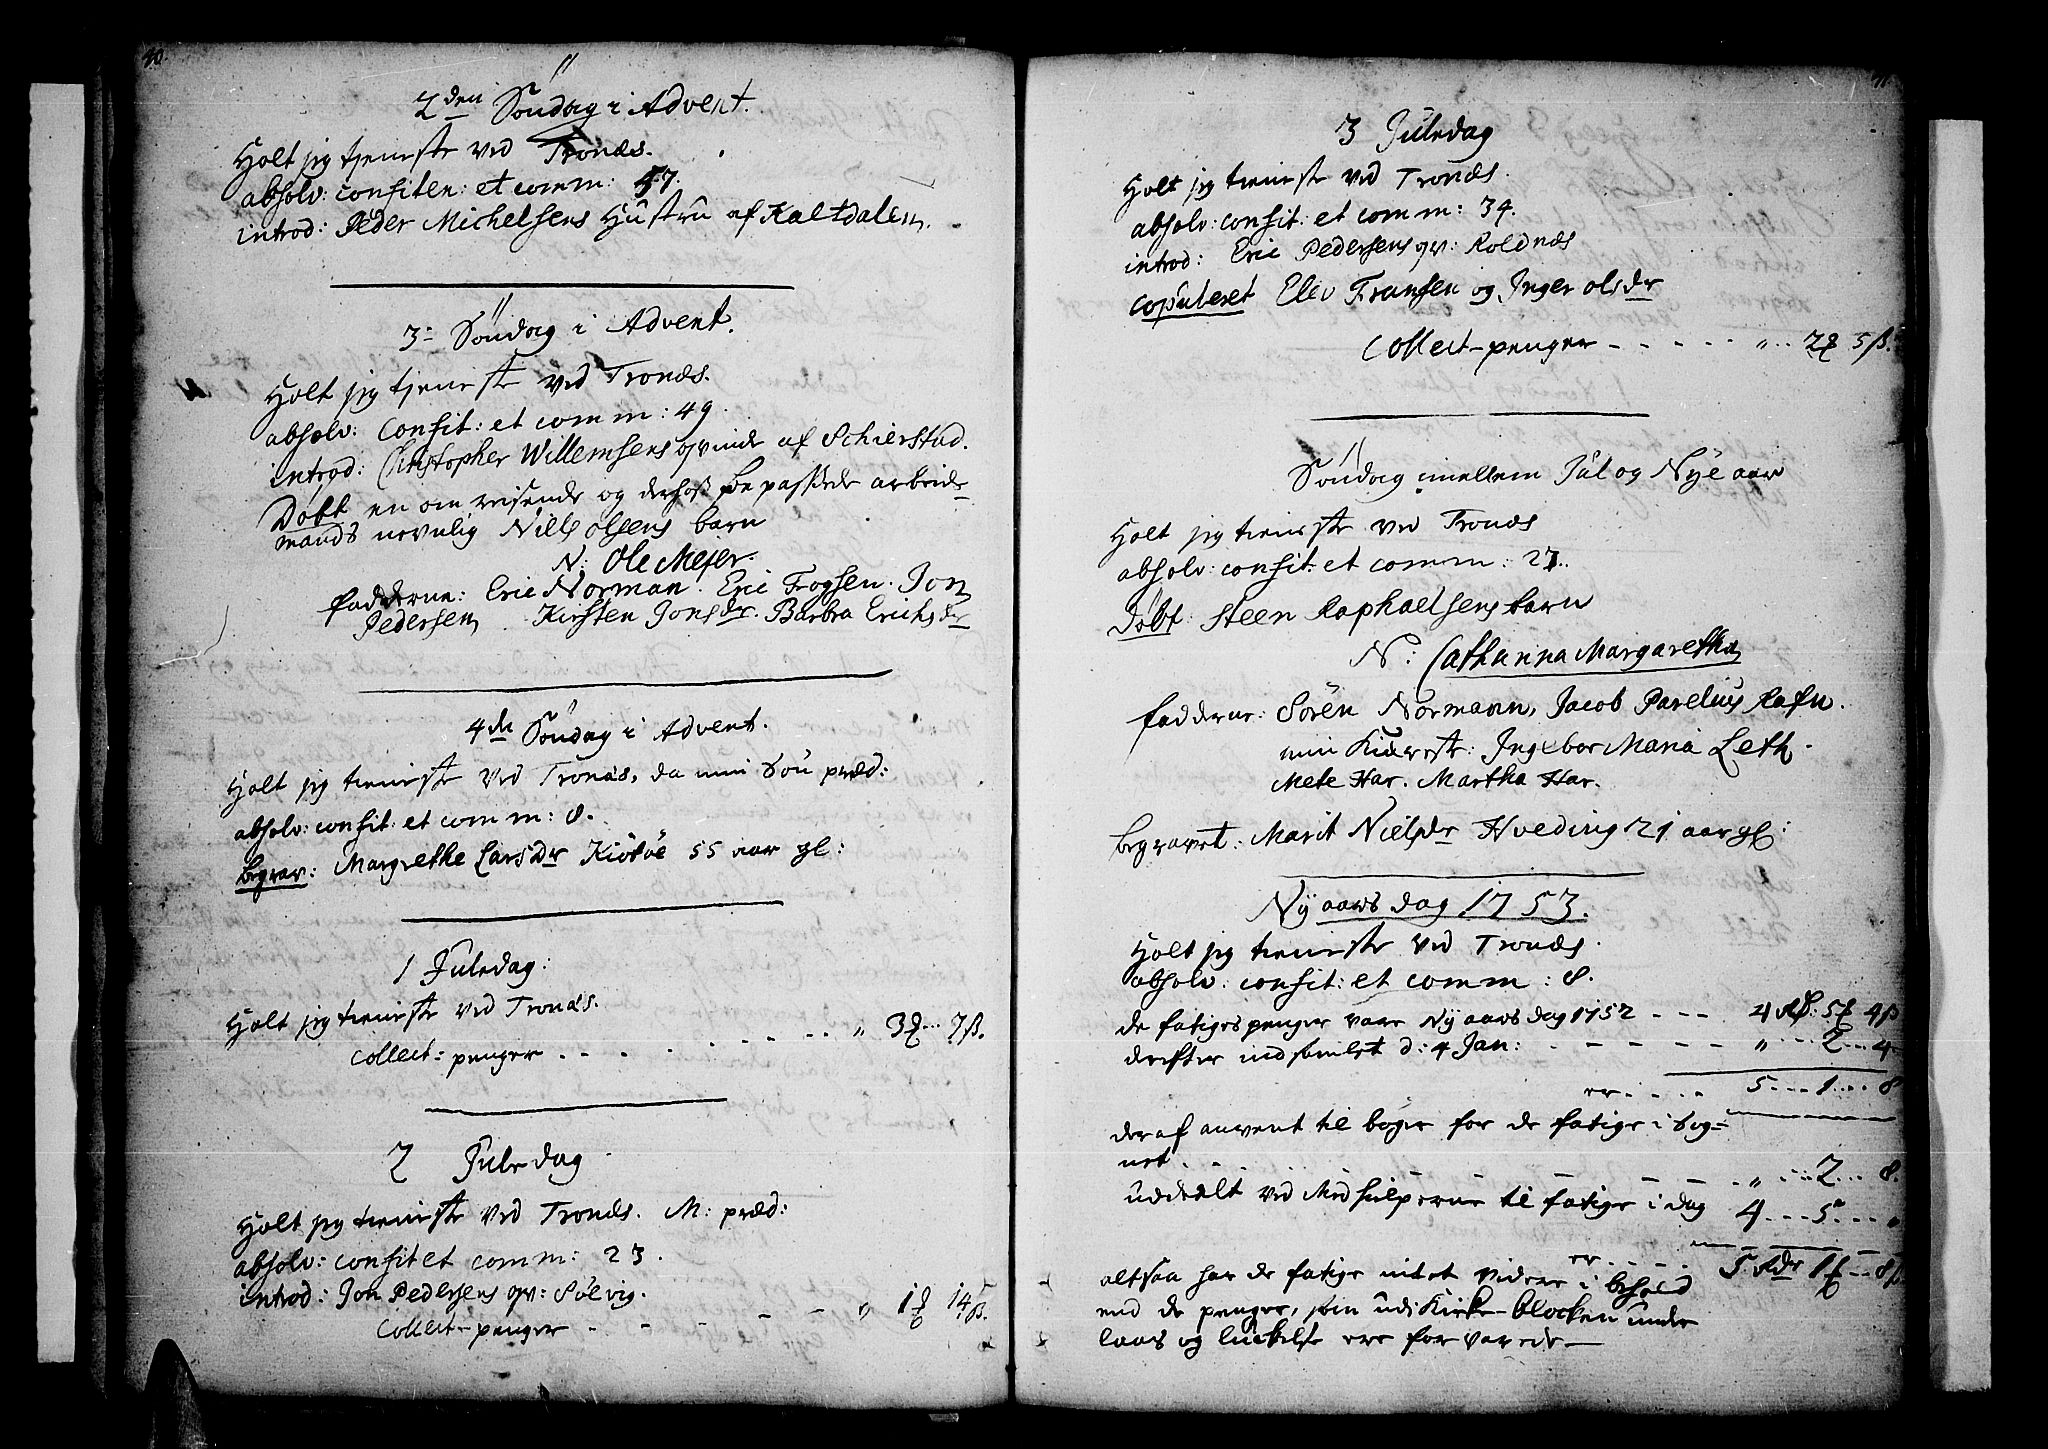 40.
2den Søndag i Advent.
Holt jeg tjeniste ved Tronæs.
absolv: confiten: et comm: 47.
introd: Peder Michelsens Hustru af Kaltdalen.
3= Søndag i Advent.
Holt jeg tjeniste ved Tronæs.
absolv: confit: et comm: 49.
introd: Christopher Willemsens qvinde af Schierstad.
Døbt en om reisende og derhos bepassede arbeids
mands nevnlig Niels olsens barn
N: Ole Mejer.
fadderne: Eric Norman. Eric Trogsen. Jon
Pedersen Kirsten Jonsdr. Barbra Erichsdr
4de Søndag i Advent.
Holt jeg tieniste ved Tronæs, da min Søn præd:
absolv: confit: et comm: 8.
begrav: Margrethe Larsdr Kiøtøe 55 aar gl:
1 Juledag:
Holt jeg tieniste ved Tronæs.
collect=penger . . . . . . . . . " 3 ... 7ß.
2 Juledag
Holt jeg tieniste ved Tronæs. M: præd:
absolv: confit et comm: 23.
introd: Jon Pedersens qv: Sølvig.
Collect-penger - - - - - " 1 14ß.
3 Juledag
Holt jeg tieniste ved Tronæs.
absolv: confit: et comm: 34.
introd: Eric Pedersens qv: Roldnæs
copuleret Elev Fransen og Inger olsdr
Collect-penger - - - - - " .. 2 5ß.
Søndag imellem Jul og Nye aar
Holt jeg tieniste ved Tronæs
absolv: confit: et comm: 27.
Døbt: Steen Raphaelsens barn
N: Catharina Margaretha
fadderne: Sören Normann, Jacob Parelius Rafn.
min Kiæreste: Ingebor Maria Leth.
Mete Har. Martha Har.
begravet: Marit Nielsdr Hveding 21 aar gl:
Ny aars dag 1753.
Holt jeg tieniste ved Tronæs.
absolv: confit: et comm: 8.
de fatiges penger vaar Ny aars dag 1752 - - - 4 rd: 5 4ß
derefter indsamlet d: 4 Jan: - - - - - - " ... 2 ... 4
er . . . . 5 ... 1 ... 8
deraf anvent til bøger for de fatige i Sog=
net . . . - - - - - " ... 2 ... 8.
uddeelt ved Medhielperne til fatige i dag 4 ... 5 ... "
er . . . . 5 rdr 1 .. 8ß
altsaa har de fatige intet videre i behold
end de penger, som udi Kirke-blocken under
laas og luckelse ere forvarede—